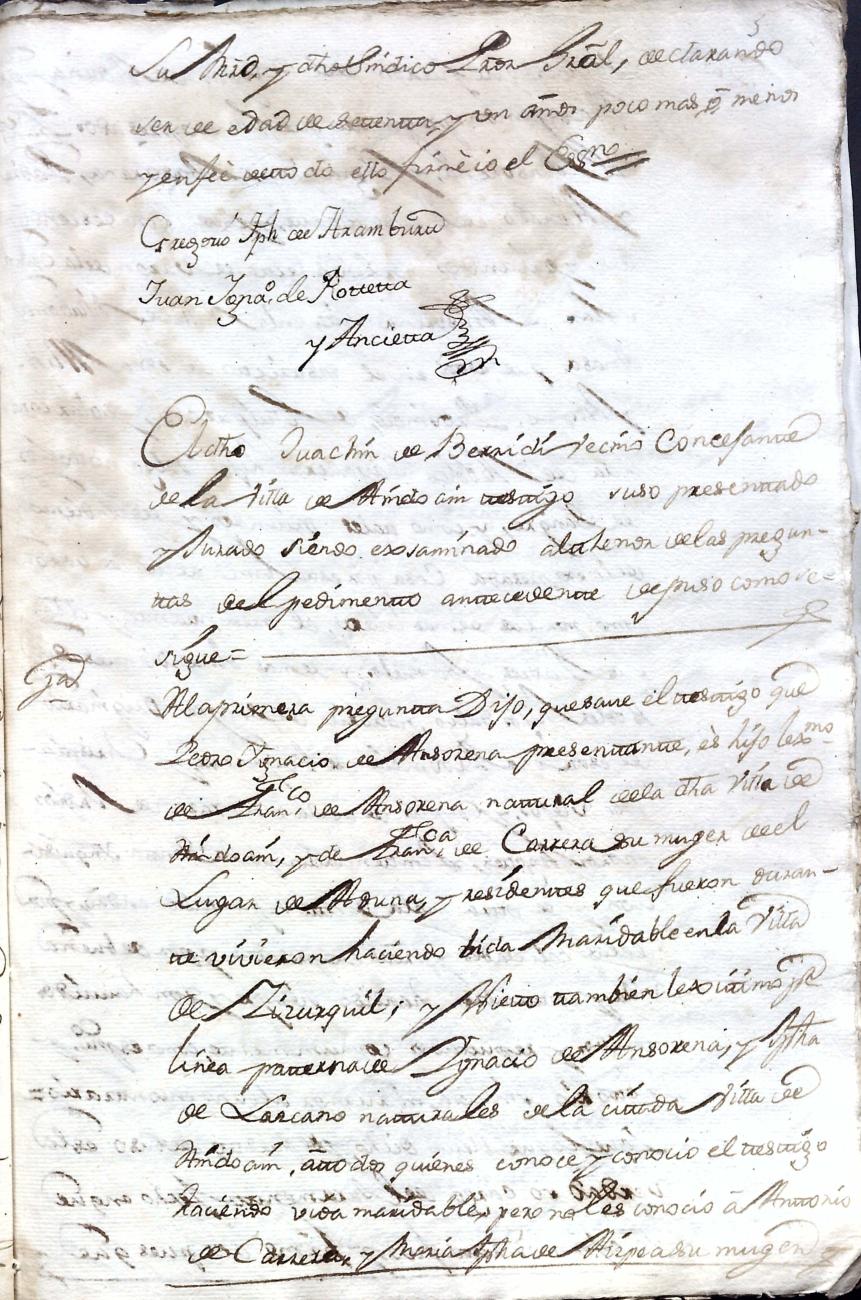 5
Su Mrd, y dho Sindico Pror Gral, declarando
ser de edad de settentta y un años poco mas ô menos
y enfeè de ttodo ello firmè io el Essno
Gregorio Jph de Aramburu
Juan Ignao. de Rottetta
y Ancietta
El dho Juachin de Berridi vecino Concejante
de la Villa de Andoain testtigo suso presenttado
y Jurado siendo exsaminado al thenor de las pregun-
ttas del pedimentto anttecedentte depuso como se
sigue=
A la primera pregunta Dijo, que save el testtigo que
Pedro Ignacio de Ansorena presenttantte, ès hijo lexmo
de Franco de Ansorena nattural de la dha Villa de
Andoain, y de Franca de Carrera su muger de el
Lugar de Aduna, y residenttes que fueron duran-
tte vivieron haciendo bida Maridable en la Villa
de Zizurquil; y Nietto ttambien lexittimo pr
linea patterna de Ignacio de Ansorena, y Jpha
de Lazcano natturales de la cittada Villa de
Andoain, a ttodos quienes conoce y conocio el testtigo
haciendo vida maridable, pero no les conociò à Anttonio
de Carrera, y Maria Jpha de Aizpea su muger